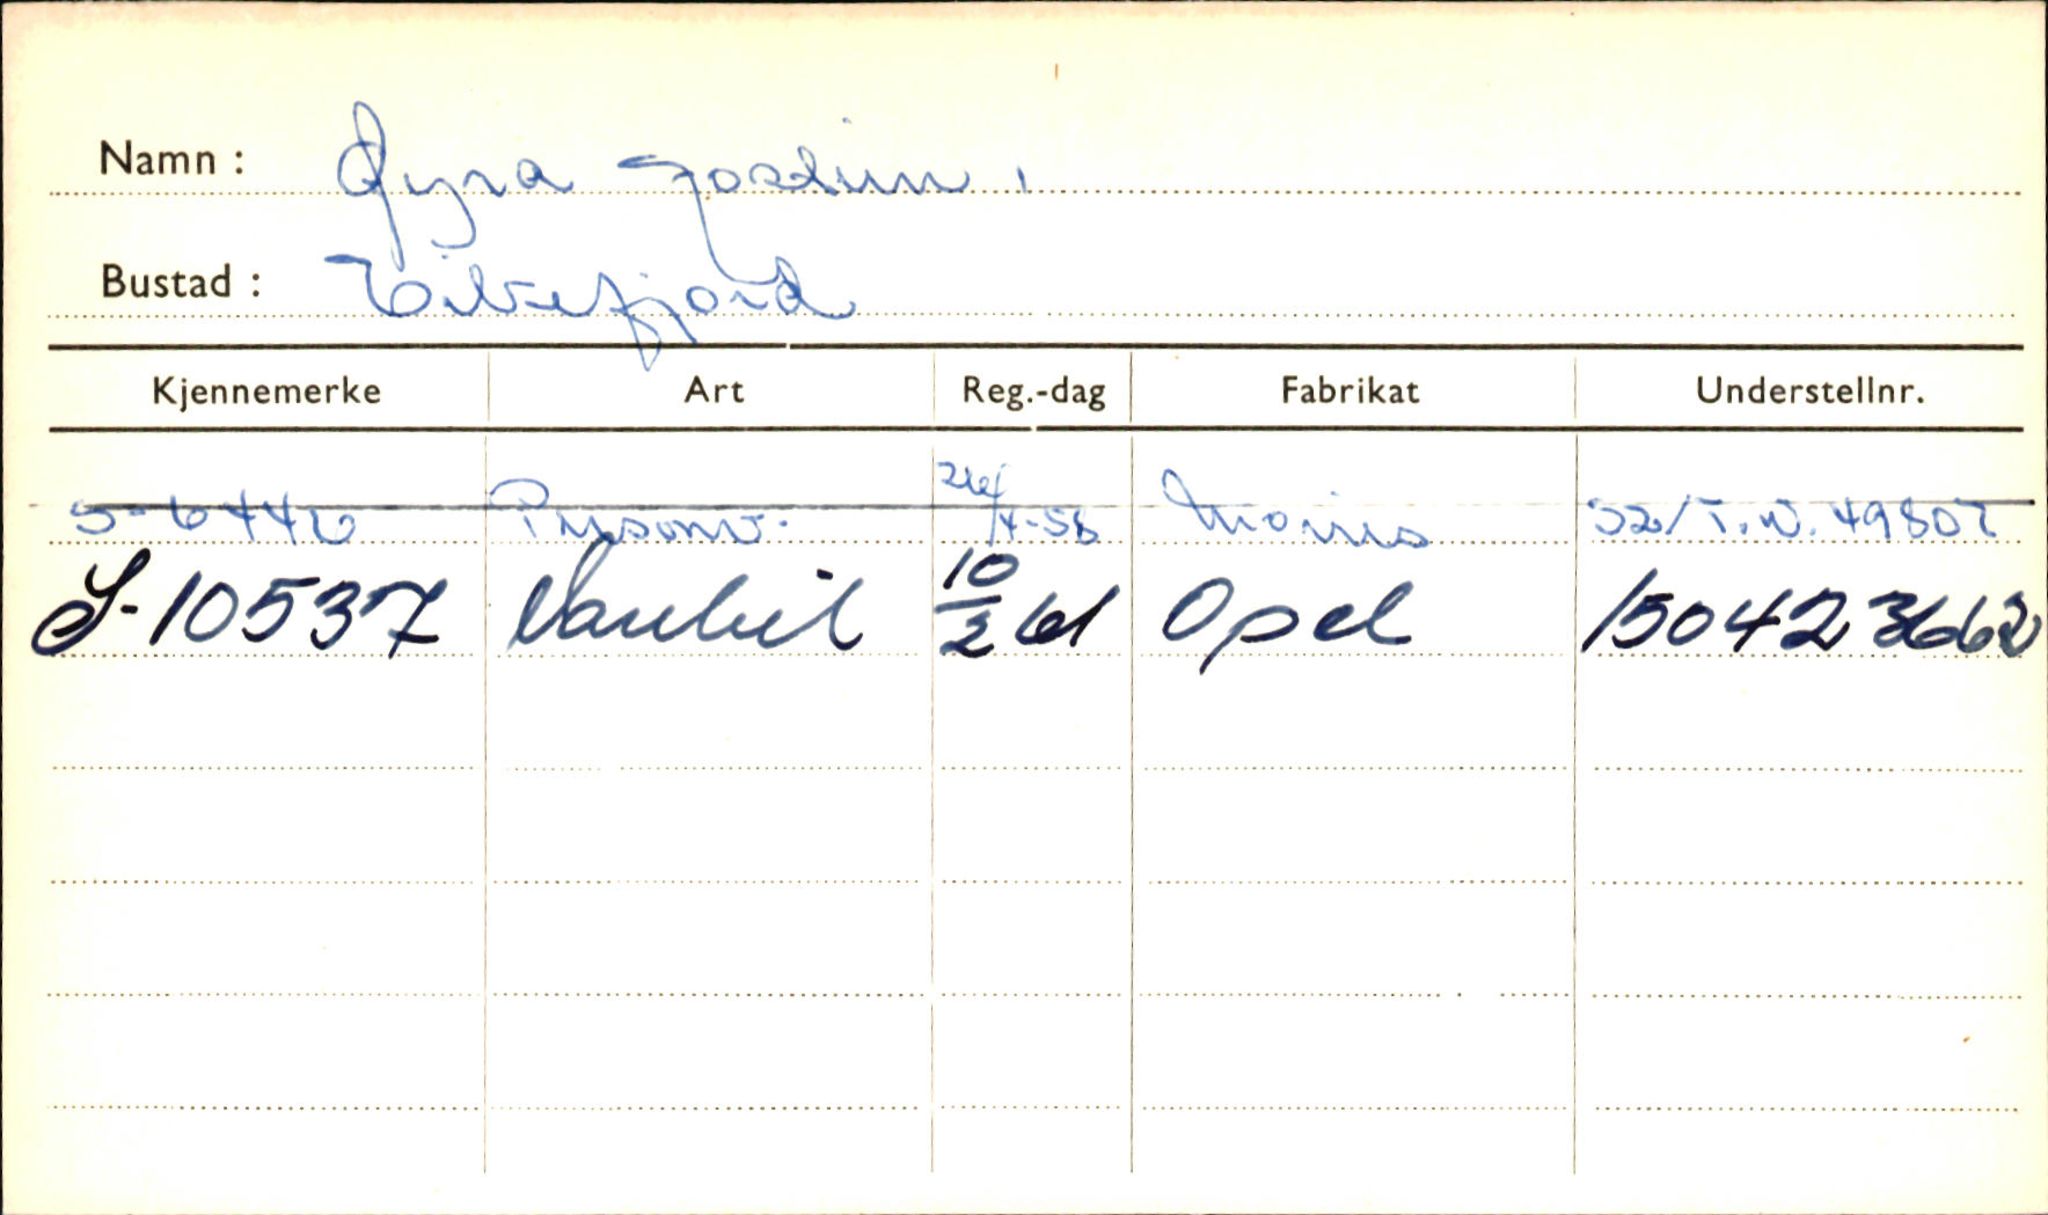 Namn : Øyra Jostein,
Bustad : Eikefjord
Kjennemerke Art Reg.-dag Fabrikat Understellnr.
S-6446 Personv. 26/4-58 Morris 52/T.W. 49807
S-10537 Varebil 10/2 61 Opel 150423662